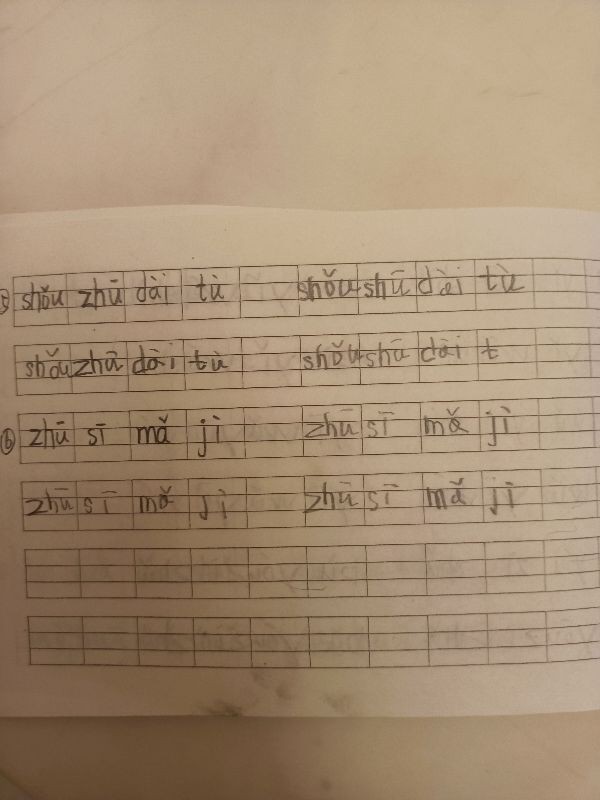 ⑤ shǒu zhū dài tù shǒu shū dài tù
shǒu zhū dài tù shǒu shū dài t
⑥ zhū sī mǎ jì zhū sī mǎ jì
zhū sī mǎ jì zhū sī mǎ jì